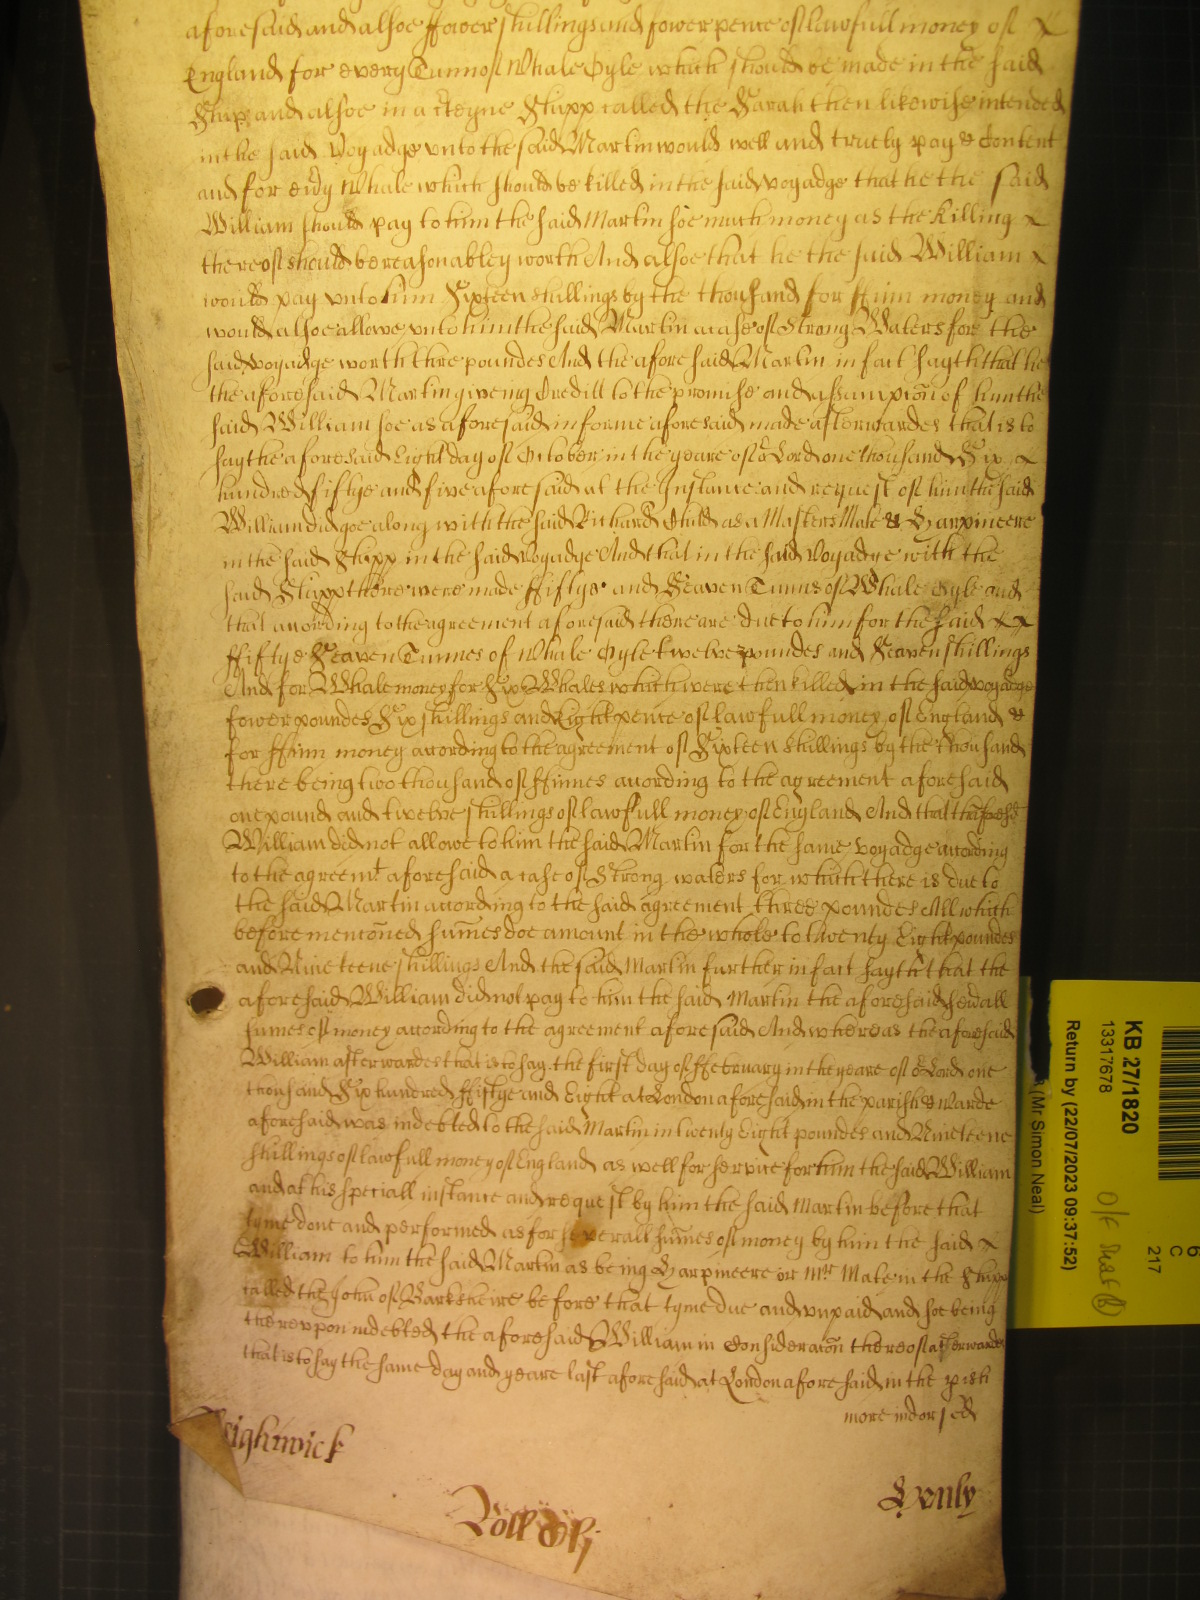 aforesaid and alsoe ffower shillings and fower pence of lawfull money of
England for every Tunn of Whale Oyle which should be made in the said
Shipp and alsoe in a Shipp called the Sarah then likewise intended
in the said Voyadge unto the said Martin would well and truely pay & Content
and for every Whale which should be killed in the said voyadge that he the said
William should pay to him the said Martin soe much money as the killing
thereof should be reasonabley worth And alsoe that he the said William
would pay unto him Sixteen shillings by the thousand for ffinn money and
would alsoe allowe unto him the said Martin a case of Strong Waters for the
said voyadge worth three poundes And the aforesaid Martin in fact sayth that he
the aforesaid Martin giveing Creditt to the promise and assumpcōn of him the
said William soe as aforesaid in forme aforesaid made afterwardes that is to
say the aforesaid Eight day of October in the yeare of oʳ Lord one thousand Six
hundred fiftye and five aforesaid at the Instance and request of him the said
William did goe along with the said Richard Child as a Masters Mate & Harpineere
in the said Shipp in the said Voyadge And that in the said Voyadge with the
said Shipp there were made ffiftye and Seaven Tunns of Whale Oyle and
that according to the agreement aforesaid there are due to him for the said
ffiftye Seaven Tunnes of Whale Oyle twelve poundes and Seaven shillings
And for Whale money for Six Whales which were then killed in the said voyadge
fower poundes Six shillings and Eight pence of lawfull money of England &
for ffinn money according to the agreement of Sixteen shillings by the thousand
there being two thousand of ffinnes according to the agreement aforesaid
one pound and twelve shillings of lawfull money of England And that the aforesd
William did not allowe to him the said Martin for the same voyadge according
to the agreemt aforesaid a case of Strong waters for which there is due to
the said Martin according to the said agreement three poundes All which
before mencōned sum̄es doe amount in the whole to twenty Eight poundes
and Nineteene shillings And the said Martin further in fact sayth that the
aforesaid William did not pay to him the said Martin the aforesaid sevᵉall
sumes of money according to the agreement aforesaid And whereas the aforesaid
William afterwardes that is to say the first day of ffebruary in the yeare of oʳ Lord one
thousand Six hundred ffiftye and Eight at London aforesaid in the parish & Warde
aforesaid was indebted to the said Martin in twenty Eight poundes and Nineteene
shillings of lawfull money of England as well for service for him the said William
and at his speciall instance and request by him the said Martin before that
tyme done and performed as for severall sum̄es of money by him the said
William to him the said Martin as being Harpineere or Mʳˢ Mate in the Shipp
called the John of Barksheire before that tyme due and unpaid and soe being
thereupon indebted the aforesaid William in Consideracōn thereof afterwardes
that is to say the same day and yeare last aforesaid at London aforesaid in the pish
more indorsed
ightwick
Roll
Henly
KB 27/1820
13317678
Return by (22/07/2023 09:37:52)
(Mr Simon Neal)
C
217